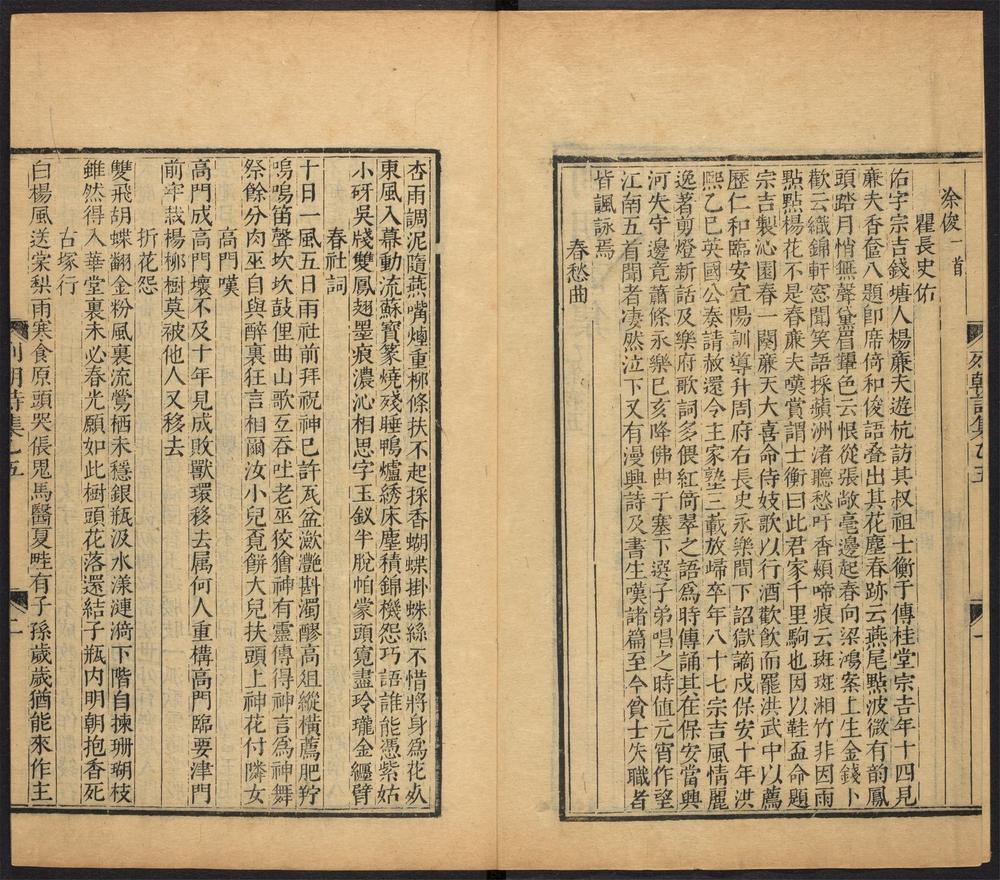 徐俊一首
瞿長史佑
佑字宗吉錢塘人楊廉夫遊杭訪其叔祖士衡于傳桂堂宗吉年十四見
廉夫香奩八題卽席倚和俊語叠出其花塵春跡云燕尾㸃波微有韵鳳
頭踏月悄無聲黛眉顰色云恨從張敞毫邊起春向梁鴻案上生金錢卜
歡云織錦軒窓聞笑語採蘋洲渚聽愁吁香頰啼痕云斑斑湘竹非因雨
㸃㸃楊花不是春廉夫嘆賞謂士衡曰此君家千里駒也因以鞋盃命題
宗吉製沁園春一闋廉夫大喜命侍妓歌以行酒歡飲而罷洪武中以薦
歷仁和臨安宜陽訓導升周府右長史永樂間下詔獄謫戍保安十年洪
熙乙巳英國公奏請赦還令主家塾三載放歸卒年八十七宗吉風情麗
逸著剪燈新話及樂府歌詞多偎紅倚翠之語爲時傳誦其在保安當興
河失守邊竟蕭條永樂己亥降佛曲于塞下選子弟唱之時值元宵作望
江南五首聞者凄然泣下又有漫興詩及書生嘆諸篇至今貧士失職者
皆諷詠焉
春愁曲
杏雨調泥隨燕嘴煙重柳條扶不起採香蝴蝶掛蛛絲不惜將身爲花死
東風入幕動流蘇寶篆燒殘睡鴨爐綉床塵積錦機怨巧語誰能憑紫姑
小砑吳牋雙鳳翅墨痕濃沁相思字玉釵半脫帕蒙頭寛盡玲瓏金纏臂
春社詞
十日一風五日雨社前拜祝神已許瓦盆瀲灔斟濁醪高俎縱橫薦肥羜
嗚嗚笛聲坎坎鼓俚曲山歌互吞吐老巫狡獪神有靈傳得神言爲神舞
祭餘分肉巫自與醉裏狂言相爾汝小兒覔餅大兒扶頭上神花付隣女
高門嘆
高門成高門壞不及十年見成敗獸環移去属何人重構高門臨要津門
前牢栽楊柳樹莫被他人又移去
折花怨
雙飛胡蝶翻金粉風裏流鶯栖未穩銀瓶汲水漾漣漪下階自揀珊瑚枝
雖然得入華堂裏未必春光願如此樹頭花落還結子瓶内明朝抱香死
古塚行
白楊風送棠梨雨寒食原頭哭張鬼馬醫夏畦有子孫歳歳猶能來作主
列朝詩集乙五
一
列朝詩集乙五
二